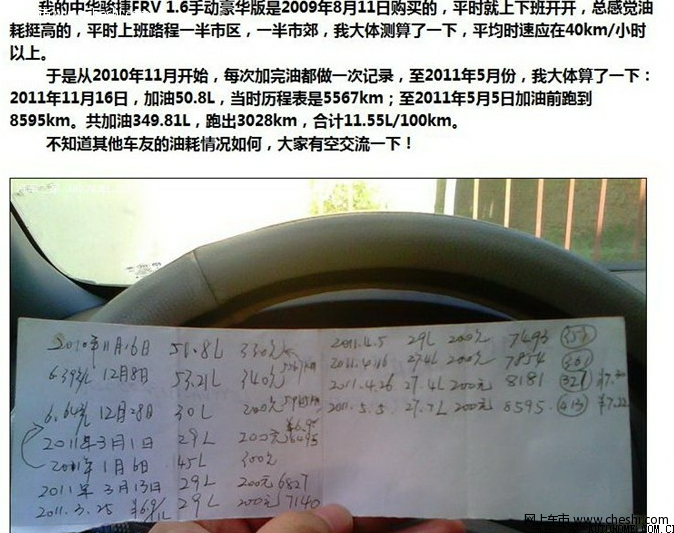 我的中华骏捷FRV 1.6手动豪华版是2009年8月11日购买的，平时就上下班开开，总感觉油
耗挺高的，平时上班路程一半市区，一半市郊，我大体测算了一下，平均时速应在40km/小时
以上。
于是从2010年11月开始，每次加完油都做一次记录，至2011年5月份，我大体算了一下：
2011年11月16日，加油50.8L，当时历程表是5567km；至2011年5月5日加油前跑到
8595km。共加油349.81L，跑出3028km，合计11.55L/100km。
不知道其他车友的油耗情况如何，大家有空交流一下！
2010年11月16日 50.8L 330元
12月8日 53.21L 340元
12月28日 30L 200元
¥6.9
2011年3月1日 29L 200元 6495
2011年1月6日 45L 300元
2011年3月13日 29L 200元 6827
2011.3.25 29L 200元 7140
2011.4.5 29L 200元 7493 353
2011.4.16 27.4L 200元 7854 361
2011.4.26 27.4L 200元 8181 327
2011.5.5 27.7L 200元 8595 413
网上车市 www.cheshi.com